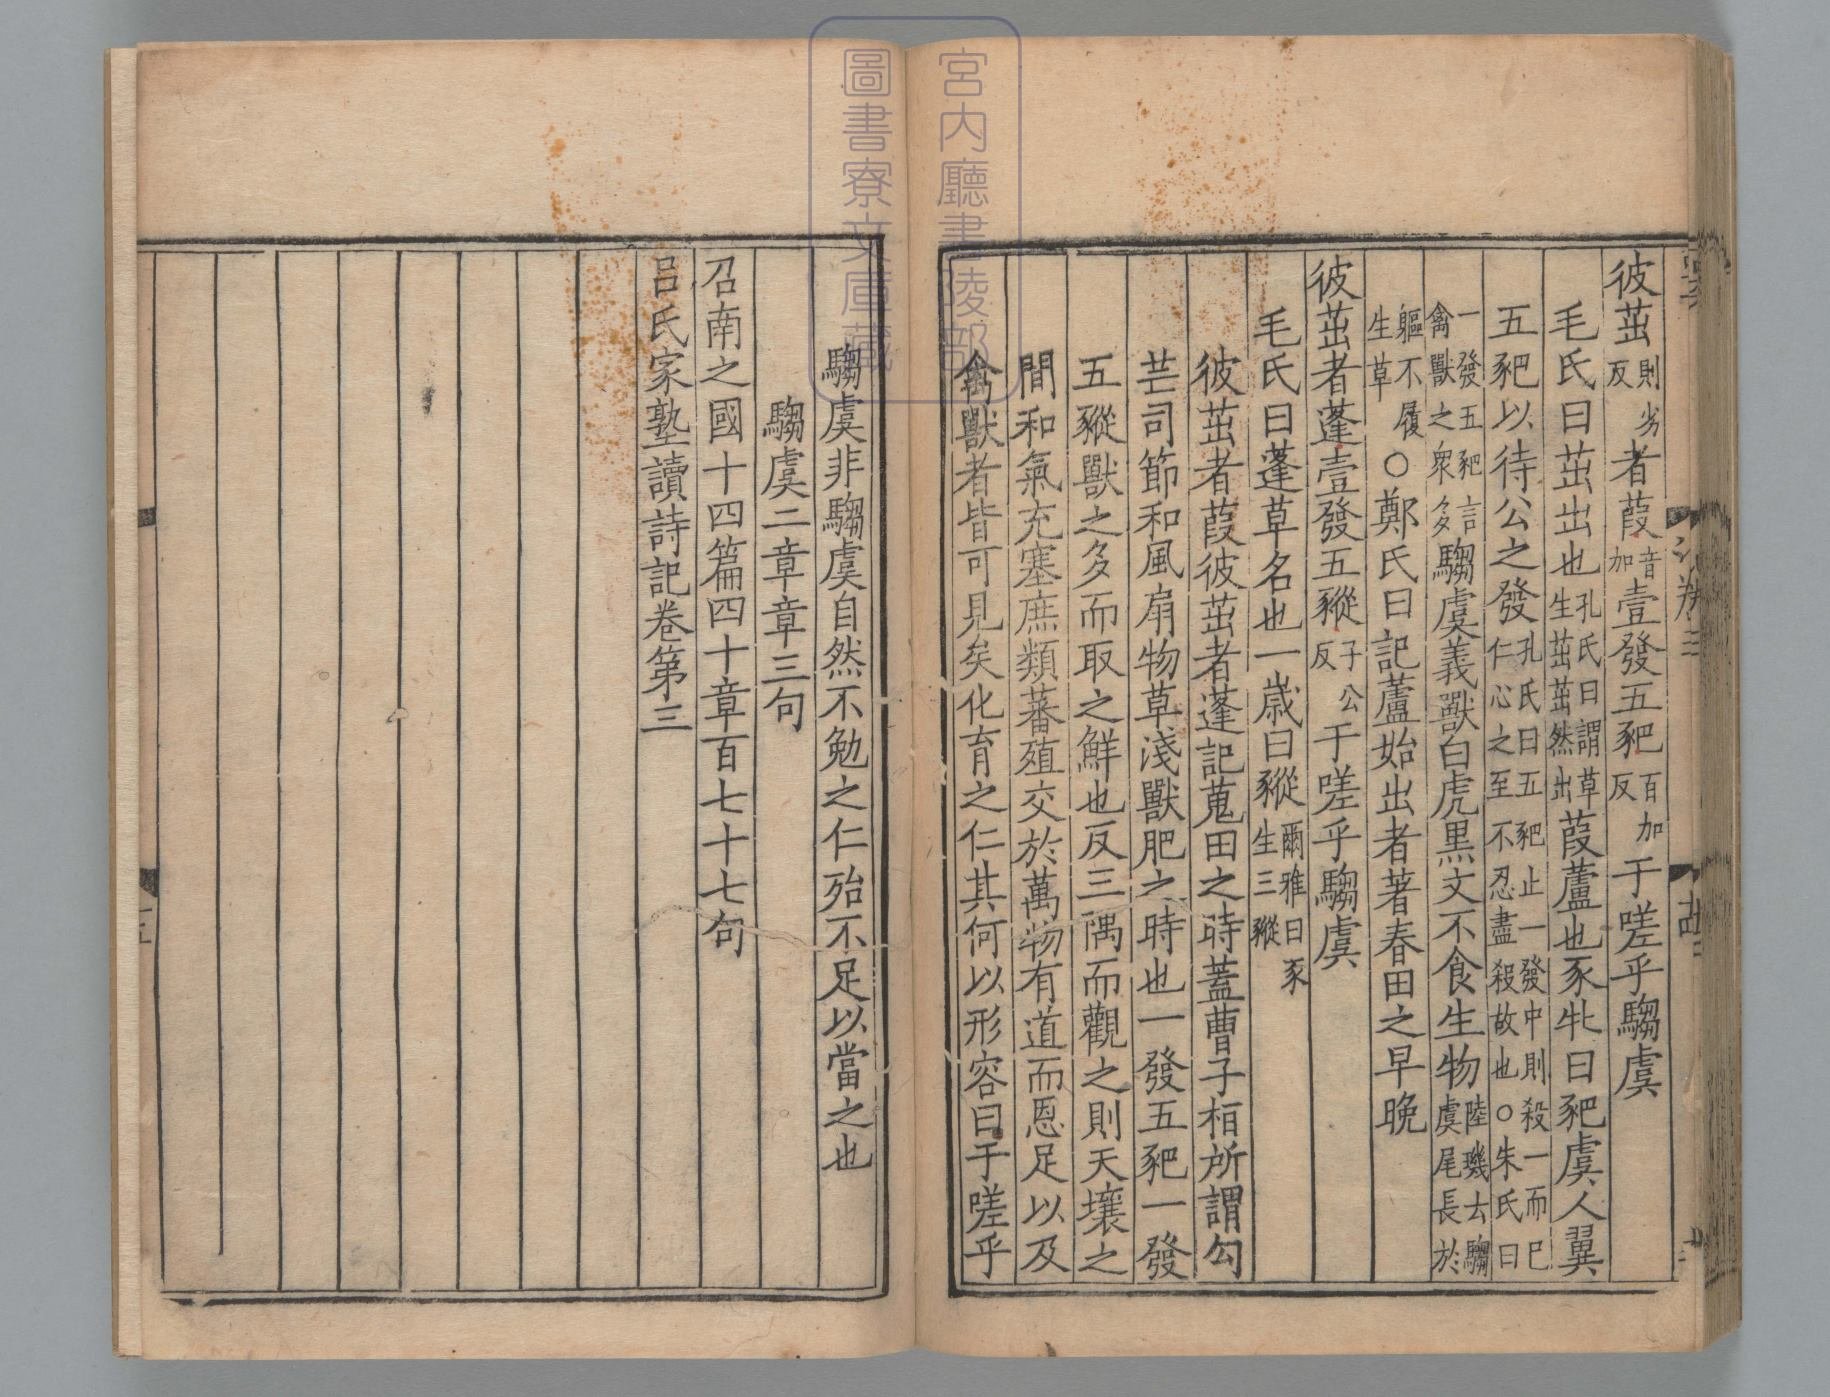 彼茁則劣反者葭音加壹發五豝百加反于嗟乎騶虞
毛氏曰茁出也孔氏曰謂草生茁茁然出葭蘆也豕牝曰豝虞人翼
五豝以待公之發孔氏曰五豝止一發中則殺一而已仁心之至不忍盡殺故也○朱氏曰
一發五豝言禽獸之衆多騶虞義獸白虎黒文不食生物陸璣云騶虞尾長於
軀不履生草○鄭氏曰記蘆始出者著春田之早晚
彼茁者蓬壹發五豵子公反于嗟乎騶虞
毛氏曰蓬草名也一歲曰豵爾雅曰豕生三豵
彼茁者葭彼茁者蓬記蒐田之時蓋曹子桓所謂勾
芒司節和風扇物草淺獸肥之時也一發五豝一發
五豵獸之多而取之鮮也反三隅而觀之則天壤之
間和氣充塞庶類蕃殖交於萬物有道而恩足以及
禽獸者皆可見矣化育之仁其何以形容曰于嗟乎
騶虞非騶虞自然不勉之仁殆不足以當之也
騶虞二章章三句
召南之國十四篇四十章百七十七句
呂氏家塾讀詩記卷第三
宮内廳書陵部
圖書寮文庫藏